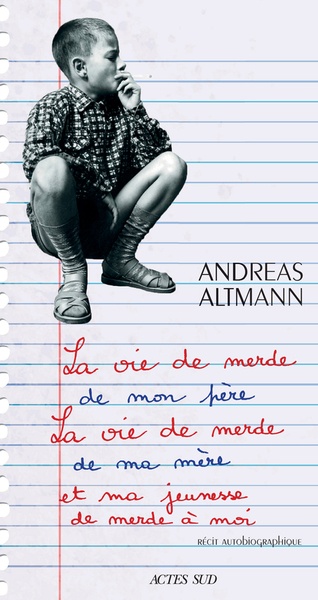 ANDREAS
ALTMANN
La vie de merde
de mon père
La vie de merde
de ma mère
et ma jeunesse
de merde à moi
RÉCIT AUTOBIOGRAPHIQUE
ACTES SUD